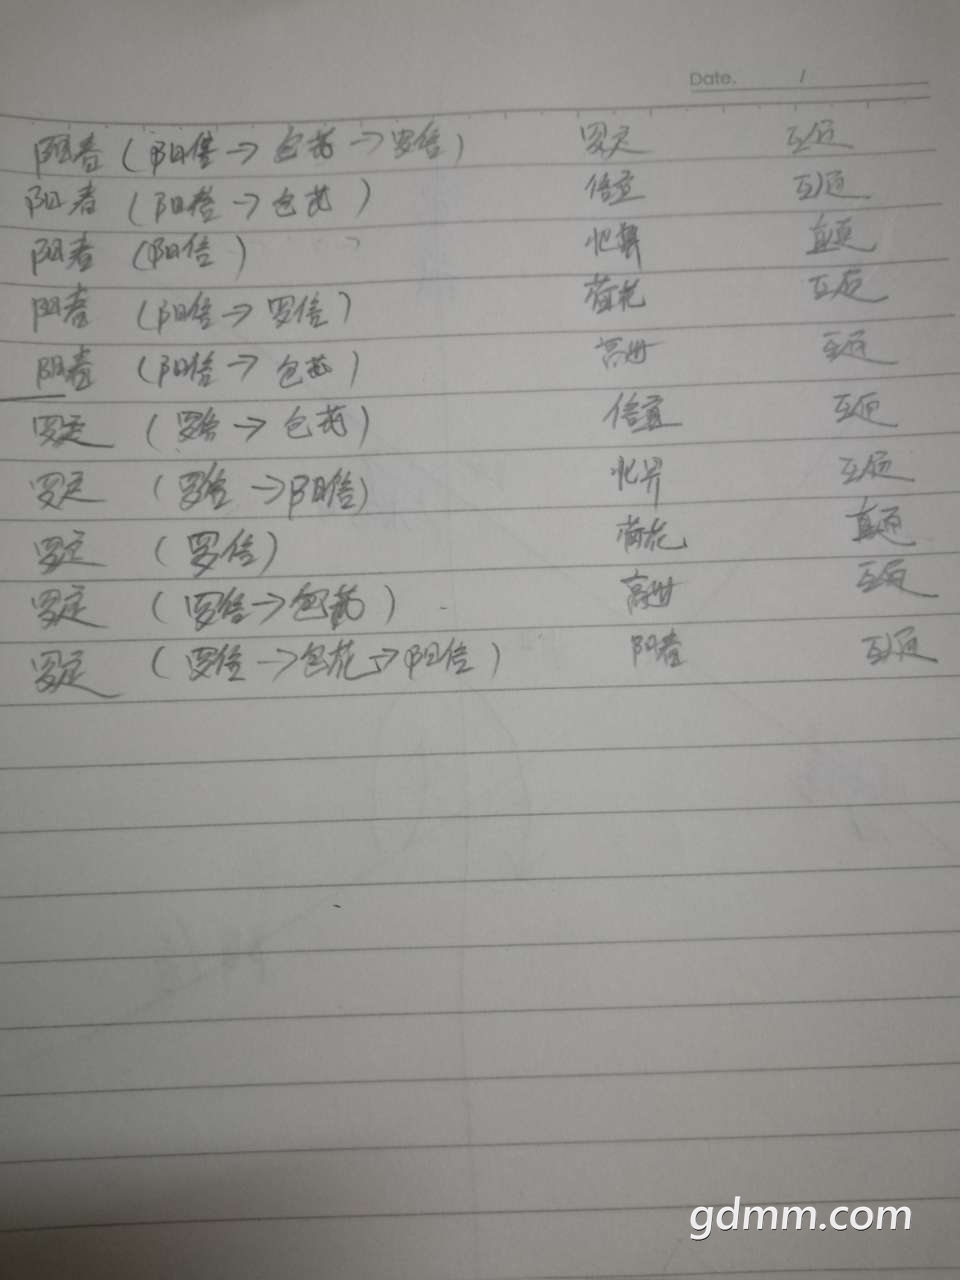 Date. /
阳春（阳信→包茂→罗信） 罗定 互通
阳春（阳信→包茂） 信宜 互通
阳春（阳信） 化州 直通
阳春（阳信→罗信） 荷花 互通
阳春（阳信→包茂） 高州 互通
罗定（罗信→包茂） 信宜 互通
罗定（罗信→阳信） 化州 互通
罗定（罗信） 荷花 直通
罗定（罗信→包茂） 高州 互通
罗定（罗信→包茂→阳信） 阳春 互通
gdmm.com